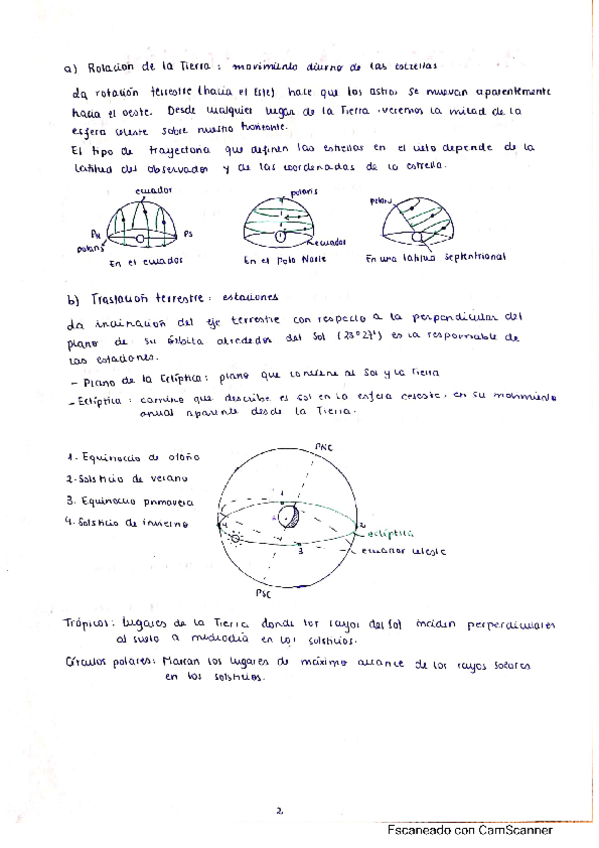 a) Rotación de la Tierra : movimiento diurno de las estrellas
La rotación terrestre (hacia el Este) hace que los astros se muevan aparentemente
hacia el oeste. Desde cualquier lugar de la Tierra veremos la mitad de la
esfera celeste sobre nuestro horizonte.
El tipo de trayectoria que definen las estrellas en el cielo depende de la
latitud del observador y de las coordenadas de la estrella.
ecuador
PN
PS
polaris
En el ecuador
polaris
ecuador
En el Polo Norte
polaris
En una latitud septentrional
b) Traslación terrestre : estaciones
La inclinación del eje terrestre con respecto a la perpendicular del
plano de su órbita alrededor del Sol (23º27') es la responsable de
las estaciones.
- Plano de la Eclíptica : plano que contiene al Sol y la Tierra
- Eclíptica : camino que describe el sol en la esfera celeste, en su movimiento
anual aparente desde la Tierra.
1. Equinoccio de otoño
2. Solsticio de verano
3. Equinoccio primavera
4. Solsticio de invierno
PNC
1
4
2
eclíptica
3
ecuador celeste
PSC
Trópicos : lugares de la Tierra donde los rayos del Sol inciden perpendiculares
al suelo a mediodía en los solsticios.
Círculos polares : Marcan los lugares de máximo alcance de los rayos solares
en los solsticios.
2
Escaneado con CamScanner